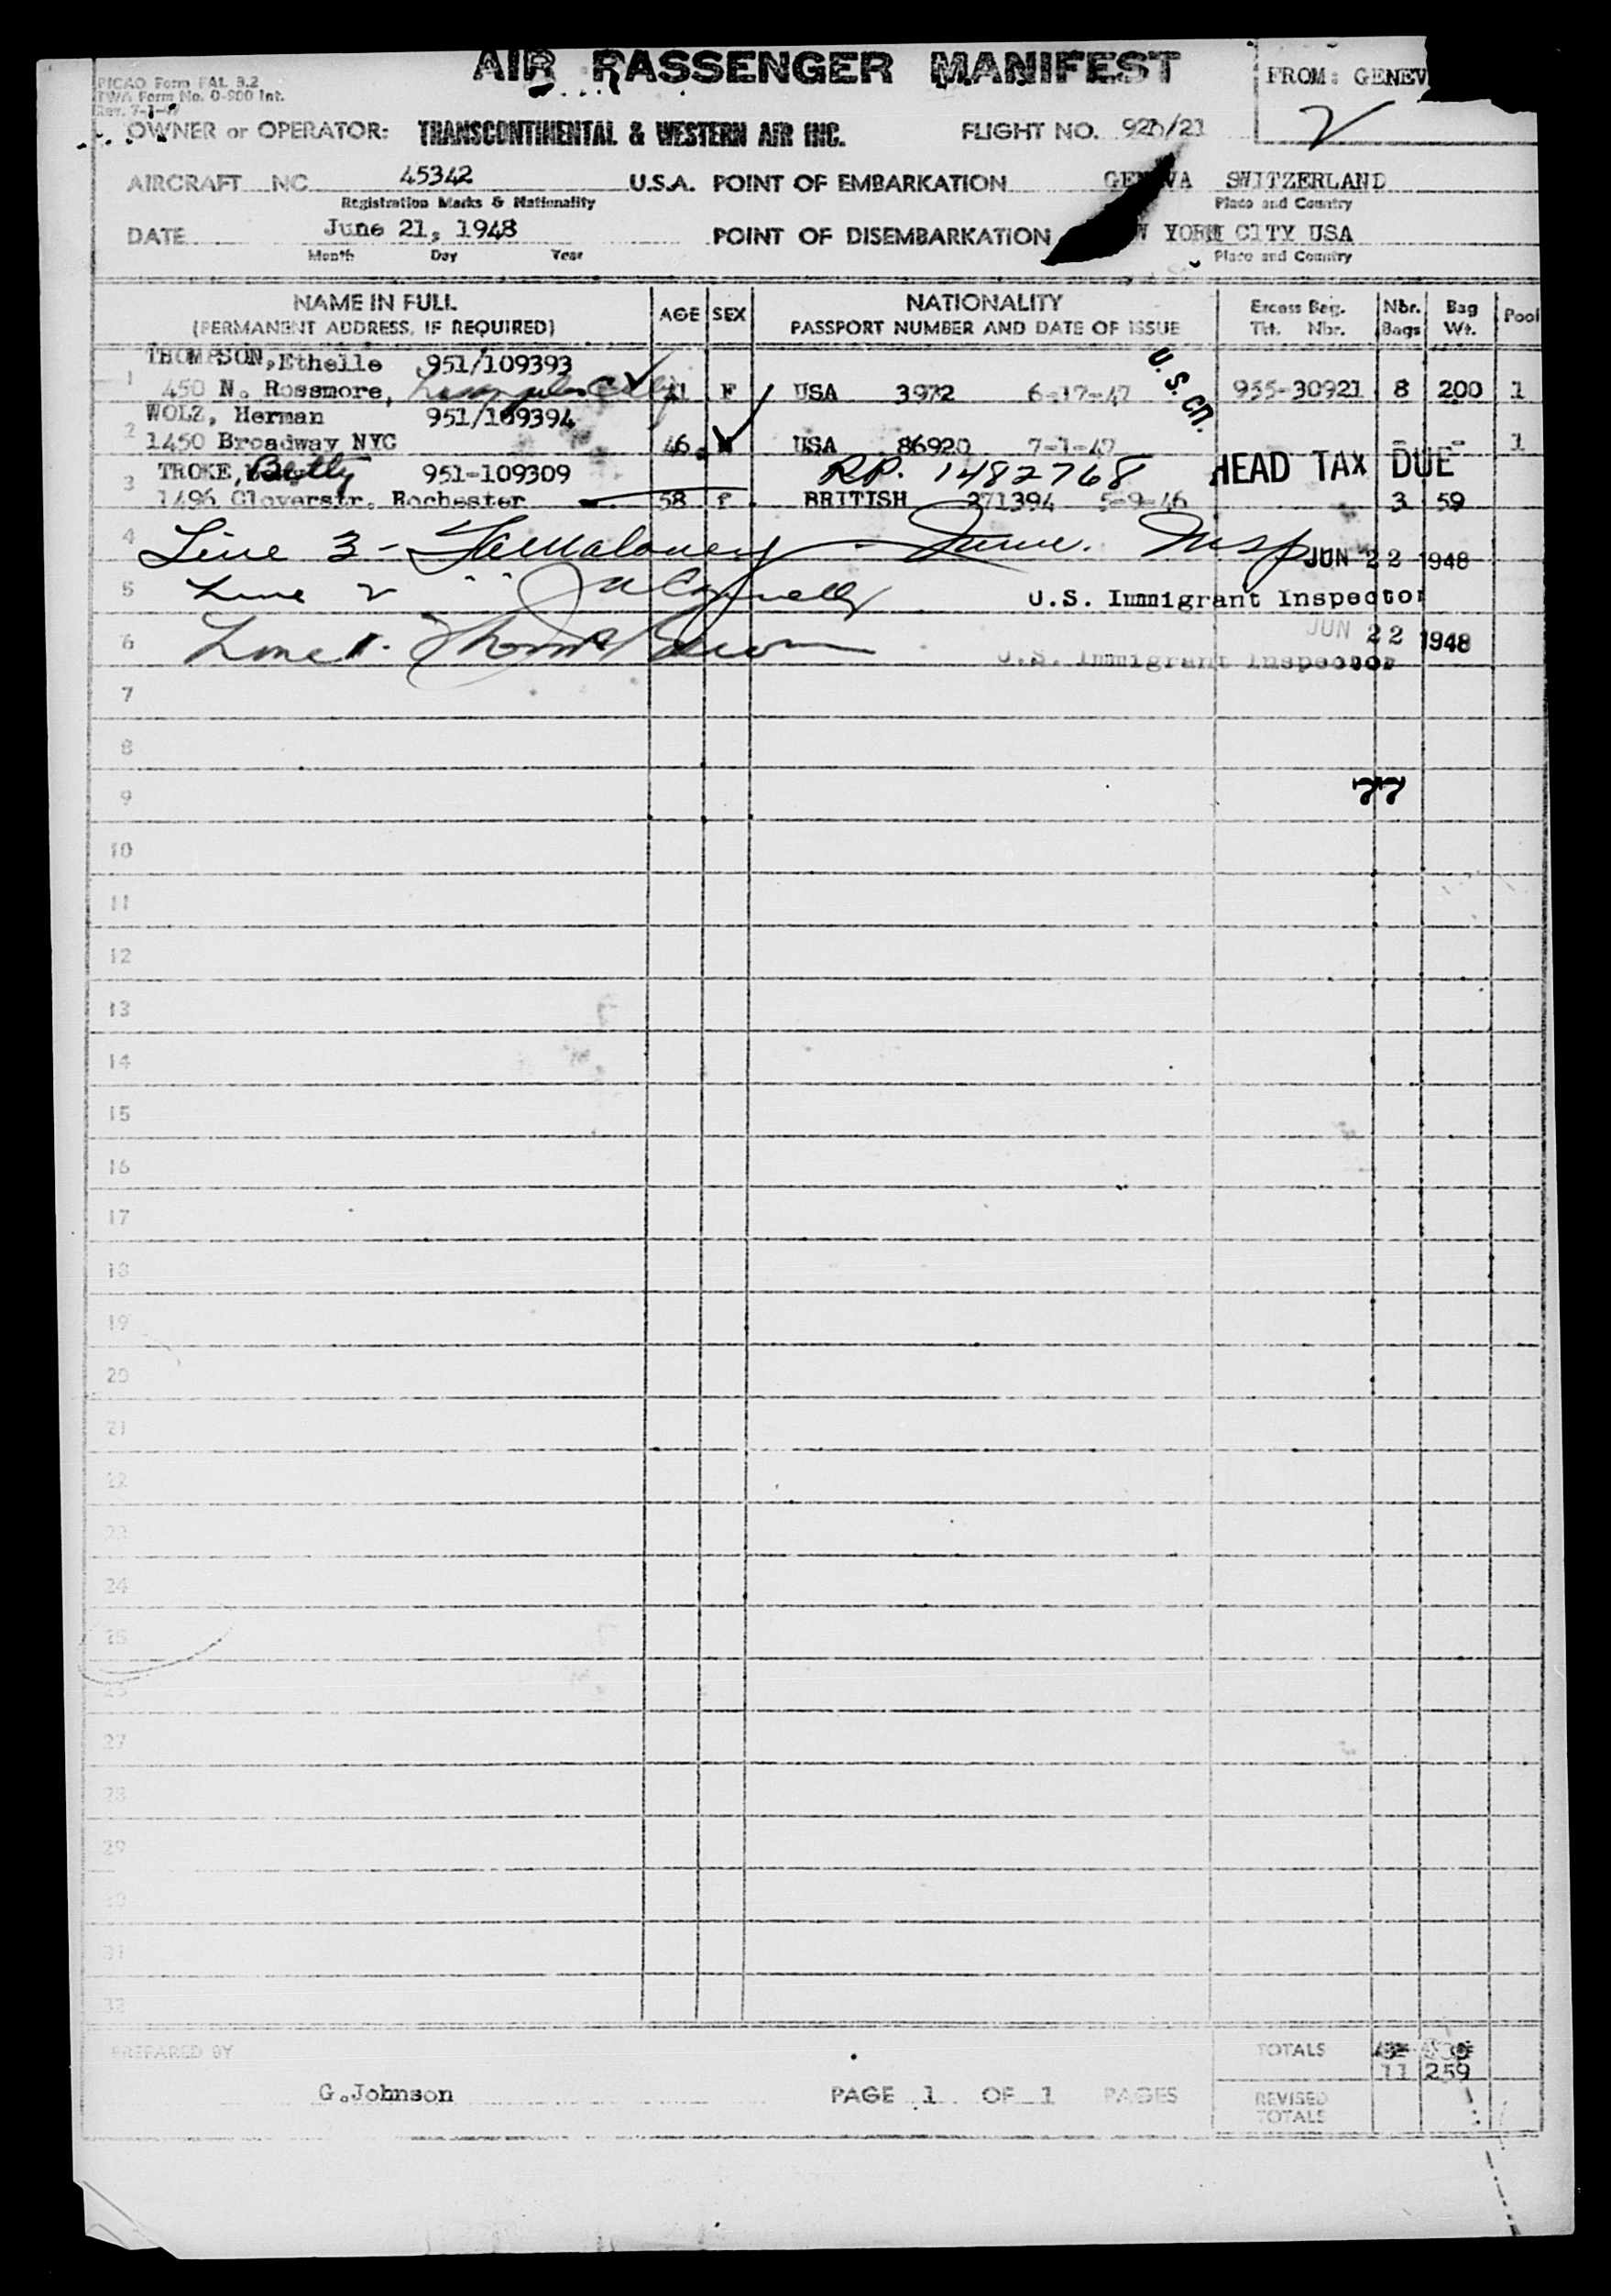 AIR PASSENGER MANIFEST
FROM: GENEV
PICAO Form FAL 3.2
TWA Form No. O-900 Int.
Rev. 7-1-47
OWNER or OPERATOR: TRANSCONTINENTAL & WESTERN AIR INC. FLIGHT NO. /21
AIRCRAFT NC 45342 U.S.A. POINT OF EMBARKATION GENEVA SWITZERLAND
Registration Marks & Nationality Place and Country
DATE June 21, 1948 POINT OF DISEMBARKATION W YORK CITY USA
Month Day Year Place and Country
NAME IN FULL AGE SEX NATIONALITY Excess Bag. Nbr. Bag Pool
(PERMANENT ADDRESS, IF REQUIRED) PASSPORT NUMBER AND DATE OF ISSUE Tkt. Nbr. Bags Wt.
THOMPSON, Ethelle 951/109393 U.S. Cn.
1 450 N. Rossmore, 41 F USA 3972 6-17-47 955-30921 8 200 1
WOLZ, Herman 951/109394
2 1450 Broadway NYC 46 USA 86920 7-1-47 - - 1
TROKE, Betty 951-109309 R.P. 1482768 HEAD TAX DUE
3 1496 Gloverstr. Rochester 58 f BRITISH 271394 5-9-46 3 59
4 Line 3 - Insp JUN 22 1948
5 Line 2 " " U.S. Immigrant Inspector
6 Line 1. JUN 22 1948
U.S. Immigrant Inspector
7
8
9 77
10
11
12
13
14
15
16
17
18
19
20
21
22
23
24
25
26
27
28
29
30
31
32
PREPARED BY TOTALS
11 259
G.Johnson PAGE 1 OF 1 PAGES REVISED
TOTALS